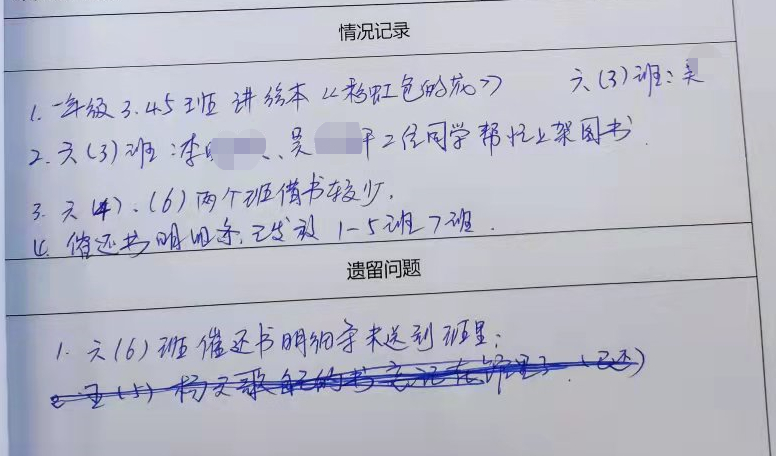 情况记录
1. 一年级3.45班 讲绘本《粉红色的花》 六(3)班:吴
2. 六(3)班:李 、吴 平2位同学帮忙上架图书.
3. 六(4)、(6)两个班借书较少.
4. 催还书明细条,已发放1-5班7班.
遗留问题
1. 六(6)班催还书明细条未送到班里;
2. 五(5)杨 的书忘记在 里了.(已还)